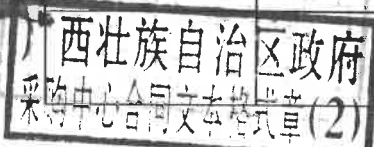 西壮族自治区政府
采购中心合同文本格式章(2)